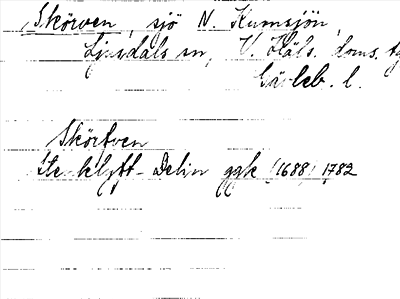 Skörven, sjö N. Kumsjön,
Ljusdals sn, V. Häls. doms.
Gävleb. l.
Skörtven
ggk (1688) 1782